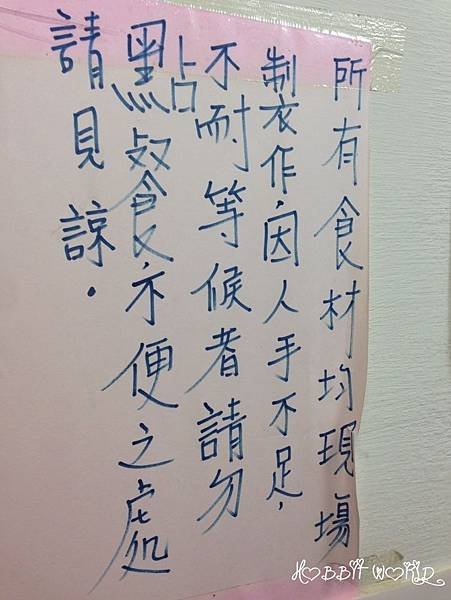 所有食材均現場
製作，因人手不足，
不耐等候者請勿
點餐，不便之處
請見諒。
HOBBIT WORLD